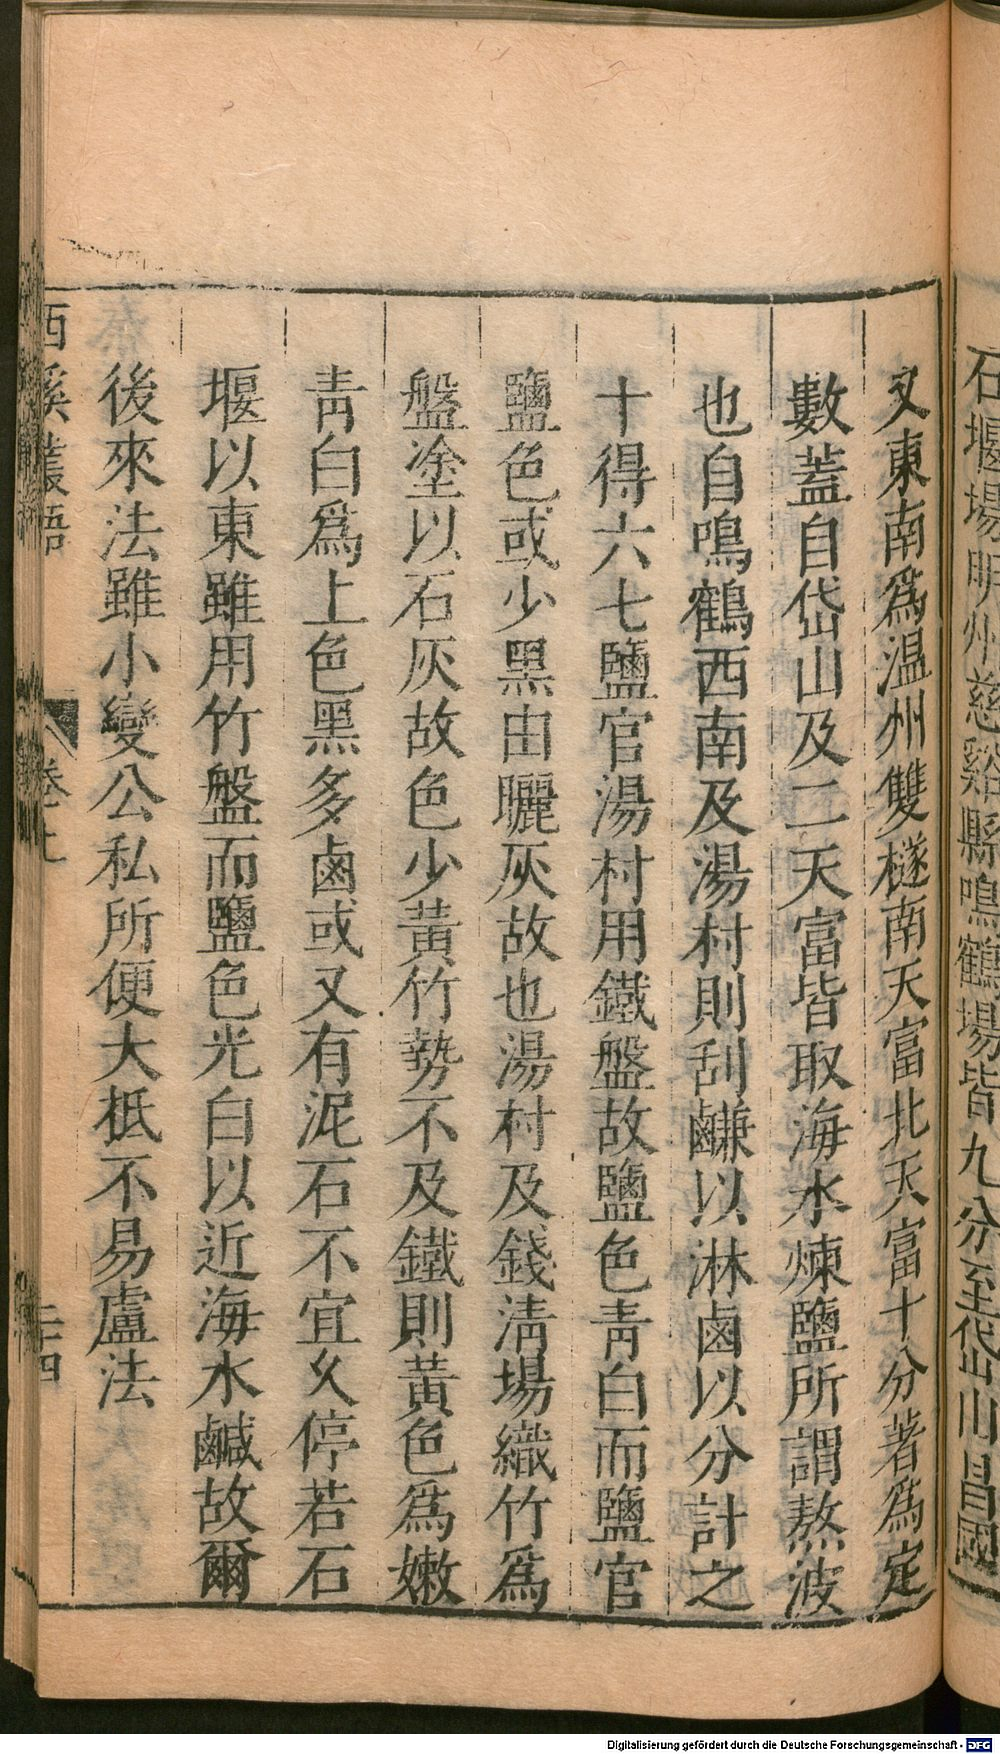 石堰場明州慈谿縣鳴鶴場皆九分至岱山昌國
又東南爲温州雙穟南天富北天富十分著爲定
數蓋自岱山及二天富皆取海水煉鹽所謂熬波
也自鳴鶴西南及湯村則刮鹻以淋鹵以分計之
十得六七鹽官湯村用鐵盤故鹽色青白而鹽官
鹽色或少黑由曬灰故也湯村及錢清場織竹爲
盤塗以石灰故色少黃竹勢不及鐵則黃色爲嫩
青白爲上色黑多鹵或又有泥石不宜久停若石
堰以東雖用竹盤而鹽色光白以近海水鹹故爾
後來法雖小變公私所便大柢不易盧法
西溪叢語 卷上 二十四
Digitalisierung gefördert durch die Deutsche Forschungsgemeinschaft - DFG